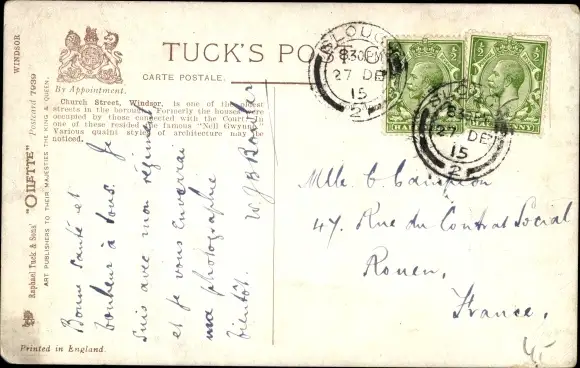 WINDSOR
Postcard 7939
"OILETTE"
Raphael Tuck & Sons'
ART PUBLISHERS TO THEIR MAJESTIES THE KING & QUEEN.
By Appointment.
TUCK'S POST C
CARTE POSTALE.
Church Street, Windsor, is one of the oldest
streets in the borough. Formerly the houses were
occupied by those connected with the Court. In
one of these resided the famous "Nell Gwynne."
Various quaint styles of architecture may be
noticed.
Bonne santé et
bonheur à tous. Je
suis avec mon régiment
et je vous enverrai
ma photographie
bientôt.
SLOUGH
8 30 PM
27 DE
15
2
SLOUGH
8 30 PM
27 DE
15
2
½ ½
½
Mlle C. Campion
47. Rue du Contrat Social
Rouen,
France,
Printed in England.